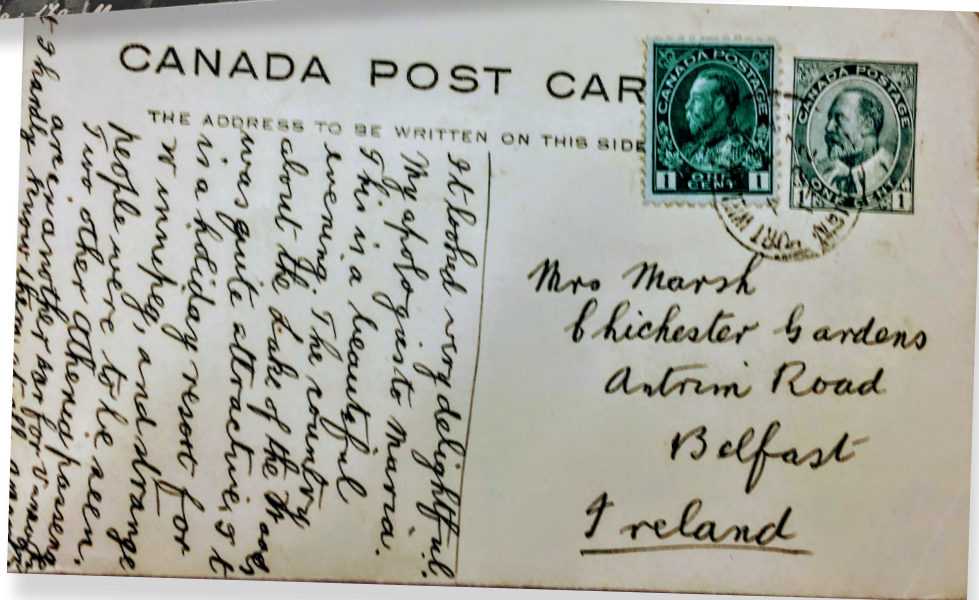 CANADA POST CAR
THE ADDRESS TO BE WRITTEN ON THIS SIDE
CANADA POSTAGE
1 ONE CENT 1
CANADA POSTAGE
1 ONE CENT 1
FORT W
Mrs Marsh
Chichester Gardens
Antrim Road
Belfast
Ireland
It looked very delightful.
My apologies to Maria.
This is a beautiful
evening. The country
about the Lake of the W oods
was quite attractive, It
is a holiday resort for
Winnipeg, and strange
people were to be seen.
Two other Athenia passen
are in another car for
I handy them at all